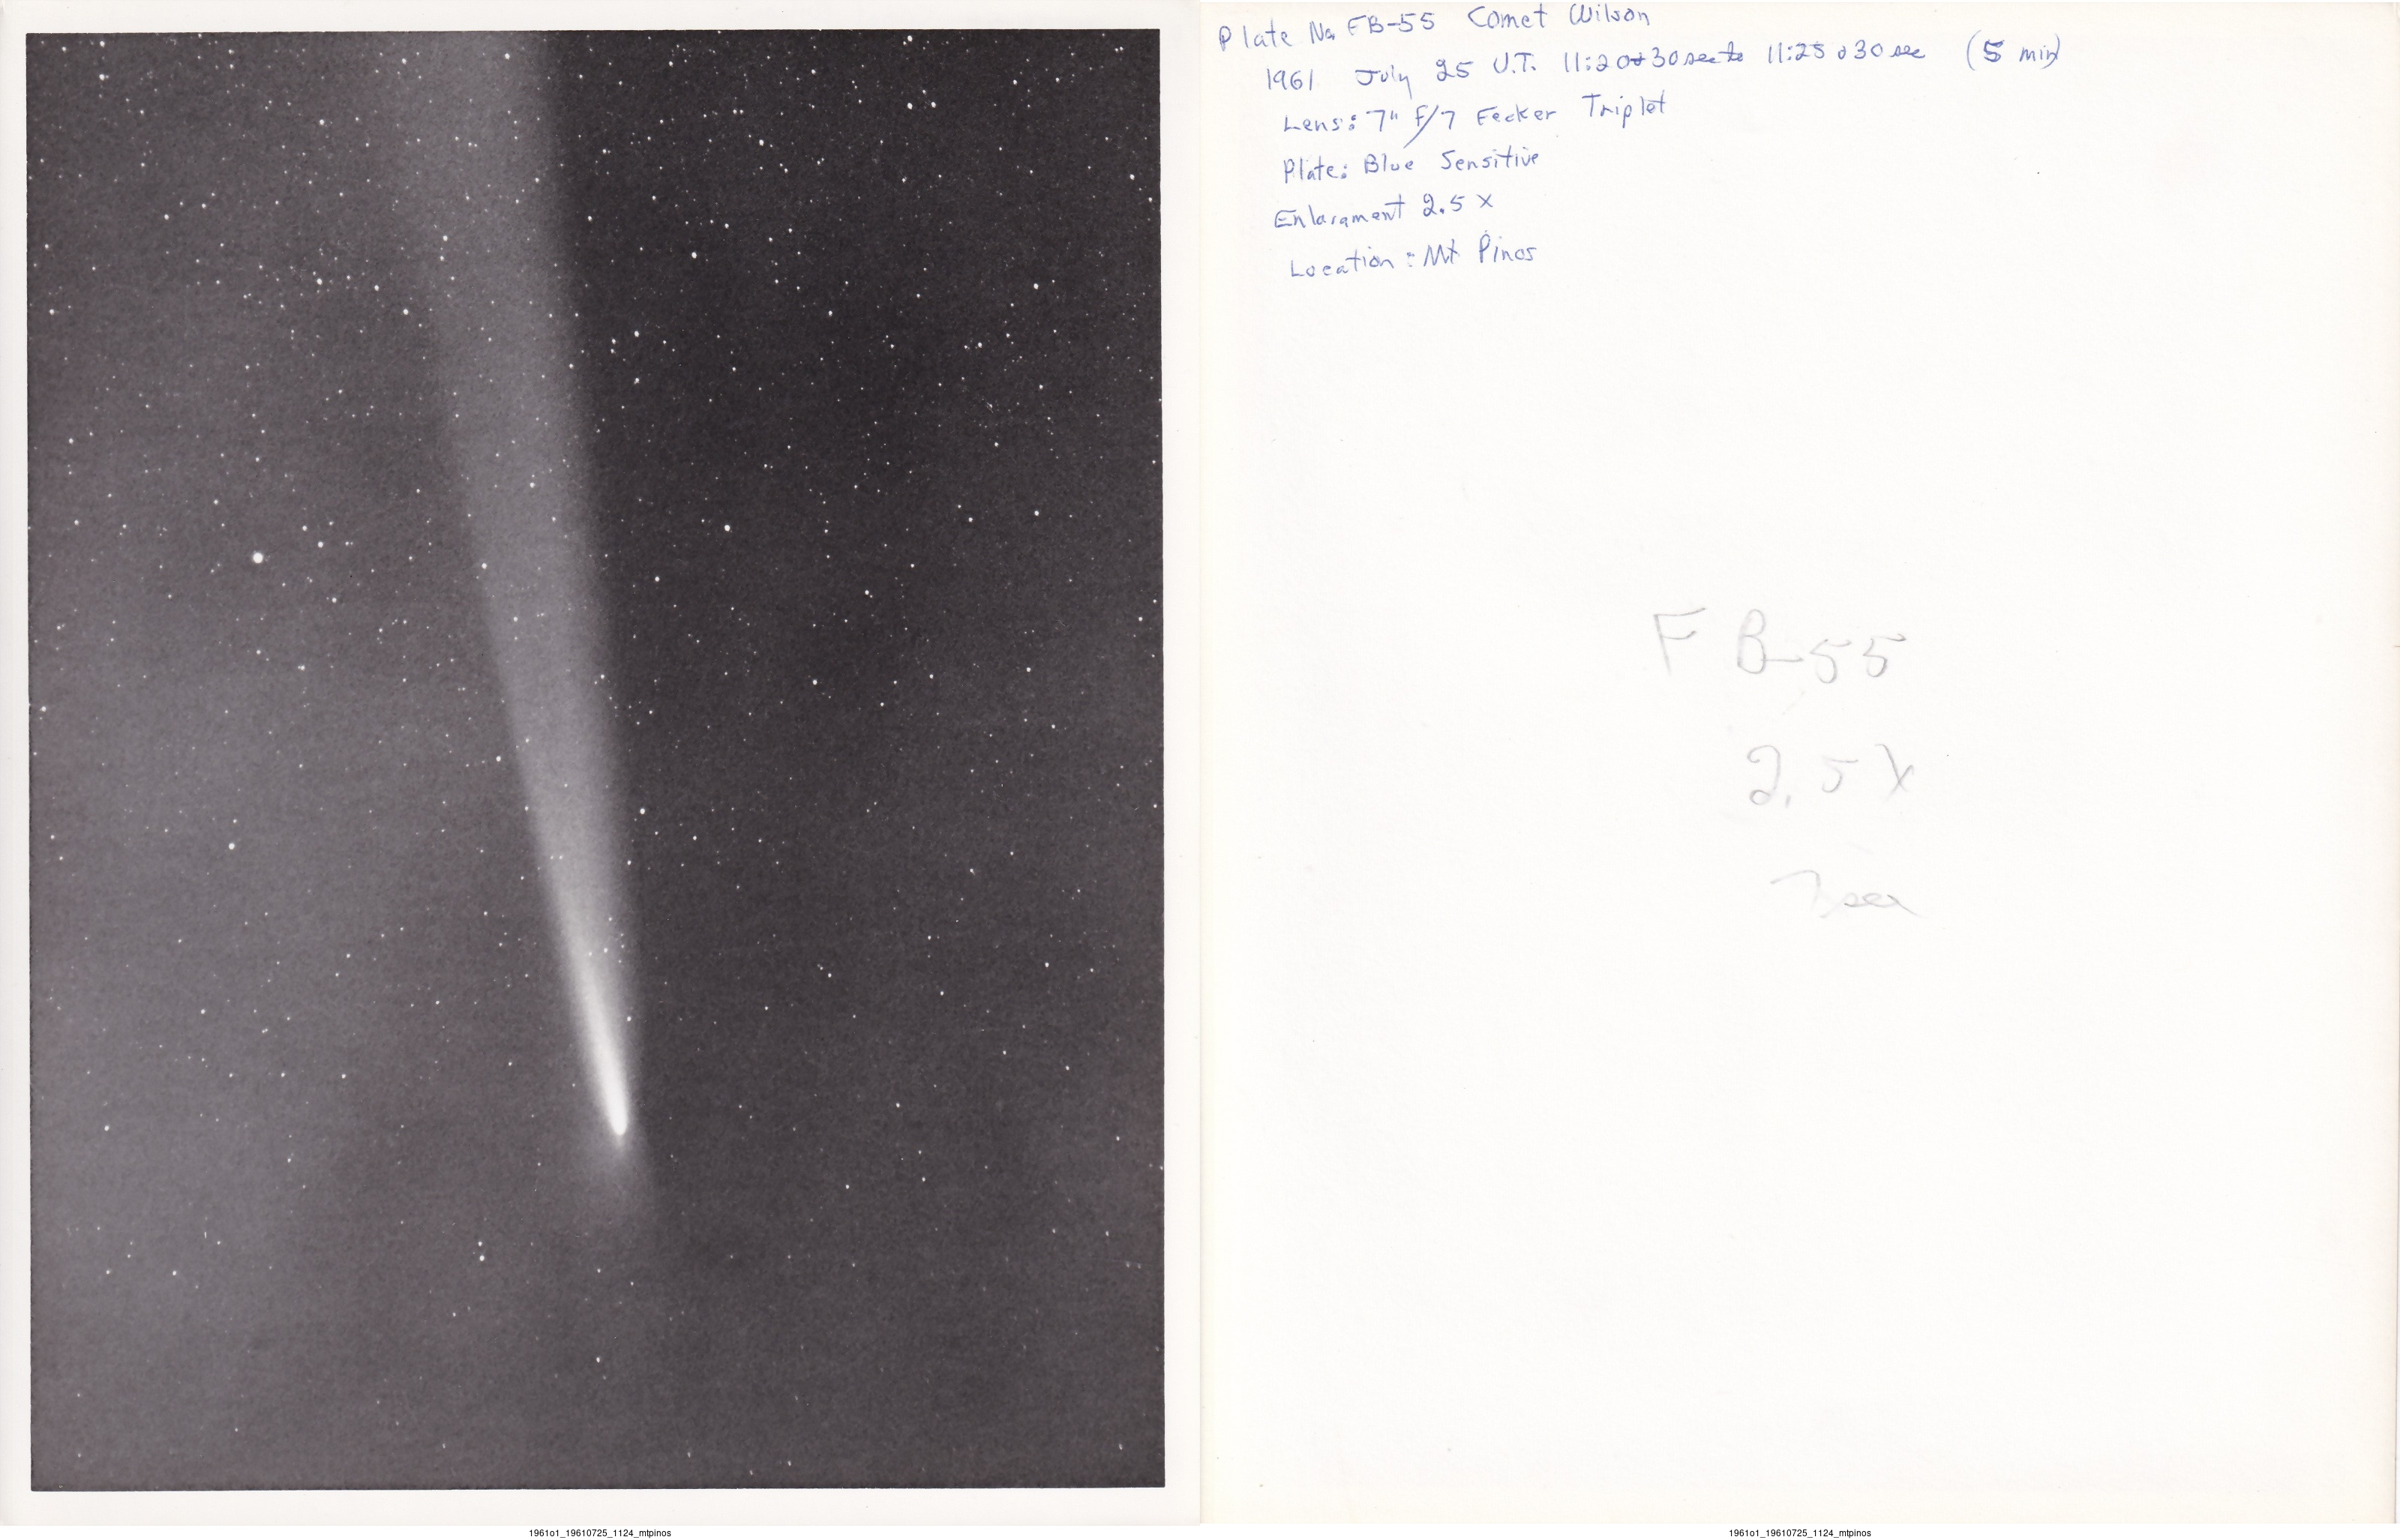 Plate No. FB-55 Comet Wilson
1961 July 25 U.T. 11:20+30 sec to 11:25+30 sec (5 min)
Lens: 7" F/7 Fecker Triplet
Plate: Blue Sensitive
Enlargment 2.5 X
Location: Mt Pinos
F B-55
2.5 X
7 sec
1961o1_19610725_1124_mtpinos
1961o1_19610725_1124_mtpinos